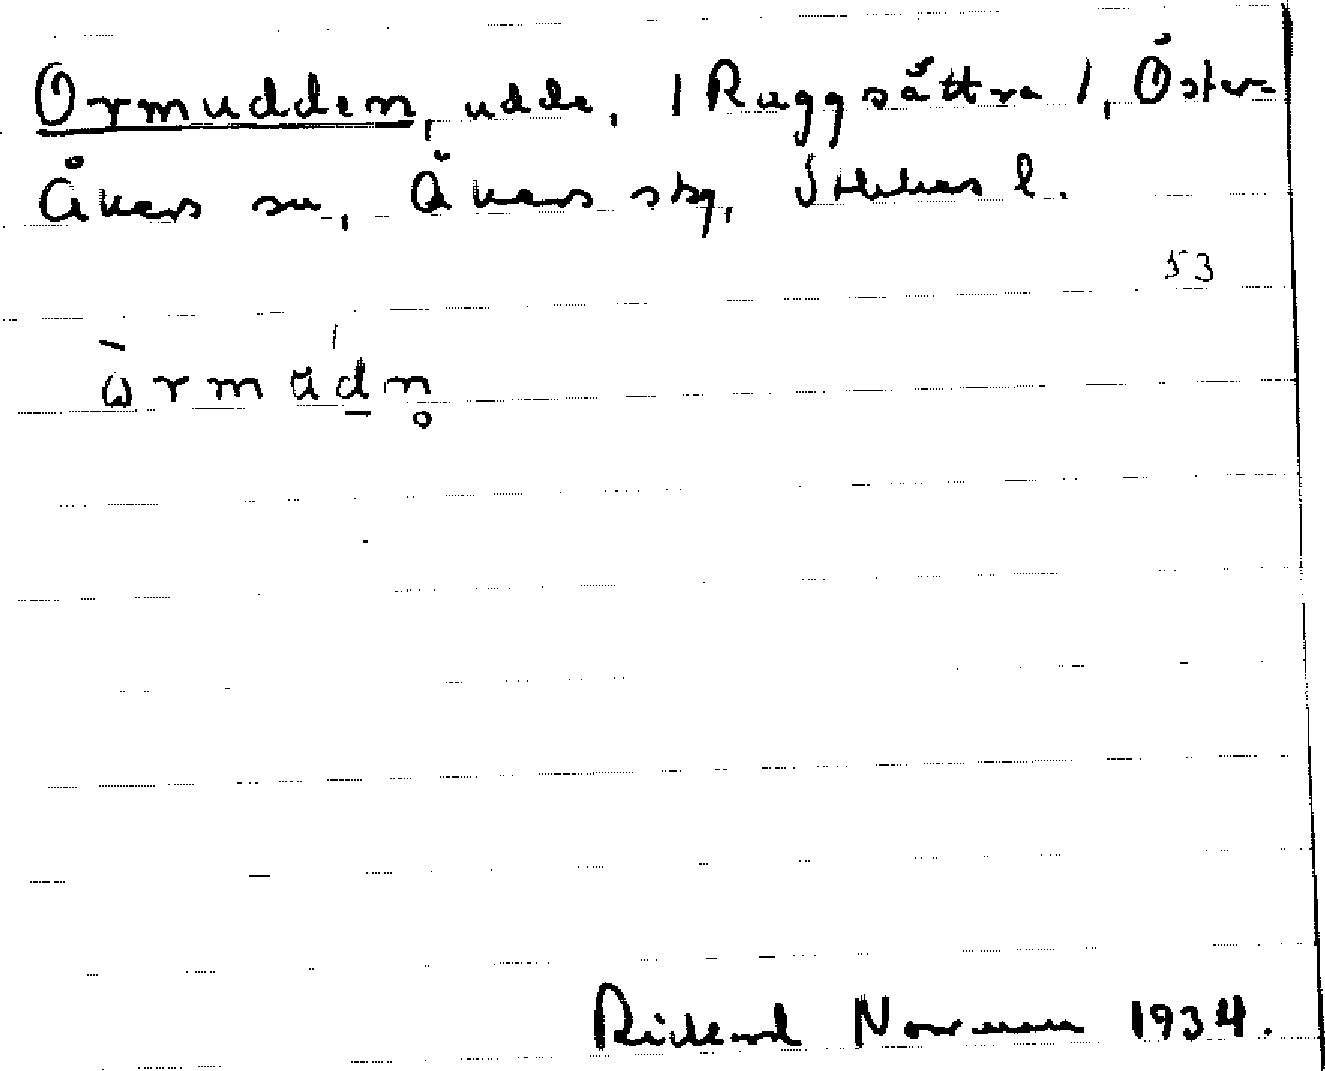 Ormudden, udde, 1 Ruggsättra 1, Öster-
Åkers sn, Åkers skg, Sthlms l.
53
ὼrmúd̲n̥
Rickard Norrman 1934.